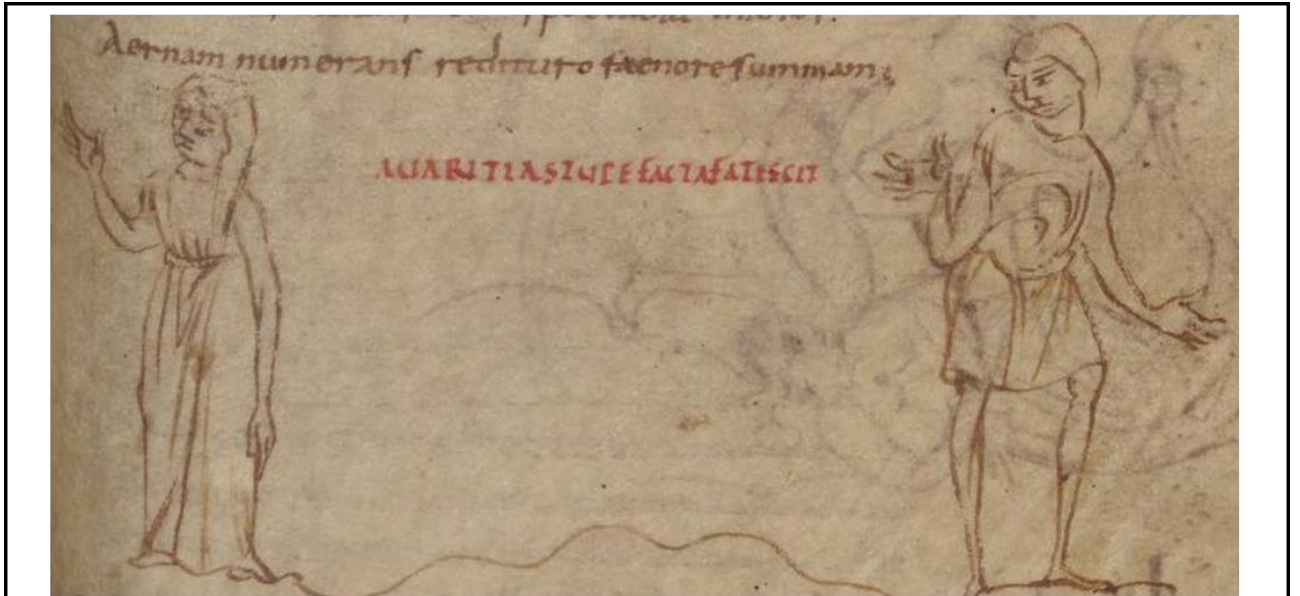 Aernam numerans redituro faenore summam;
AUARITIA STUPEFACTA FATESCIT